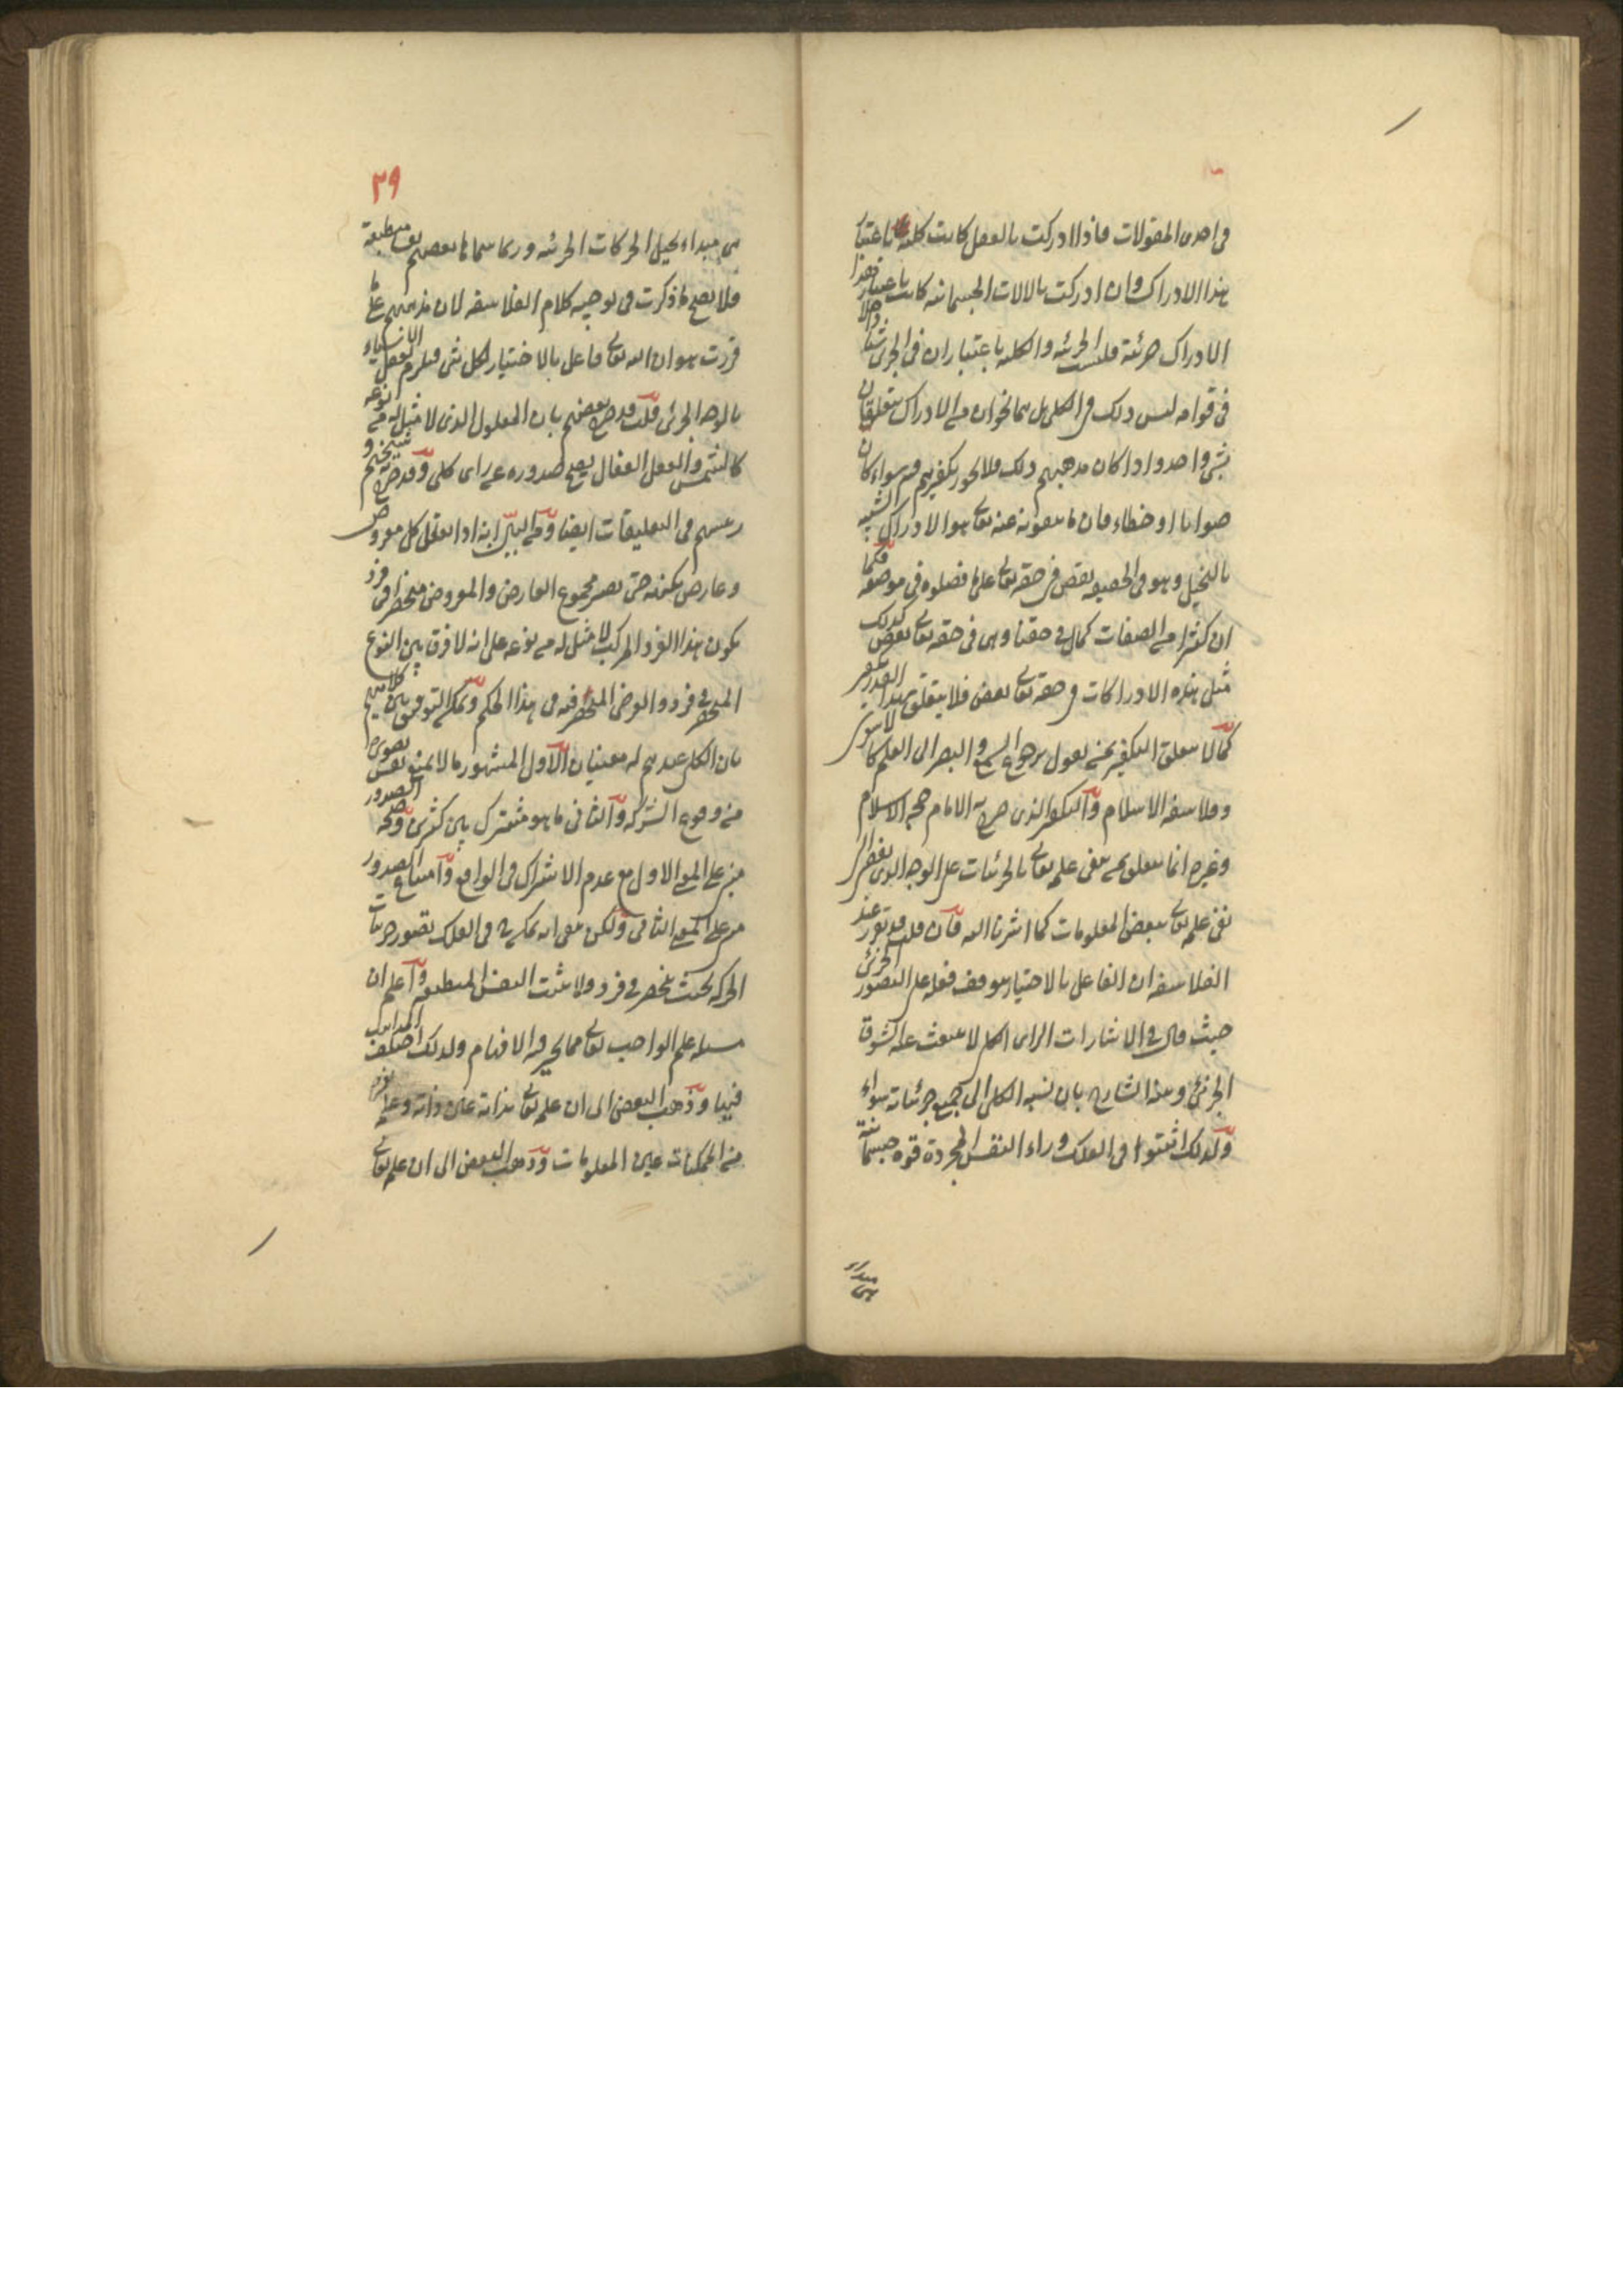 في احدى المقولات فاذا ادركت بالعقل كانت كلية باعتبار
هذا الادراك وان ادركت بالالات الجسمانية كانت باعتبار هذا
الادراك جزئية فليست الجزئية والكلية باعتبار ان في الجزئي شيئا داخلا
في قوامه ليس ذلك في الكلي بل هما نحوان من الادراك يتعلقان
بشئ واحد واذا كان مذهبهم ذلك فلا يجوز تكفيرهم به سواء كان
صوابا او خطاء فان ما ينفونه عنه تعالى هو الادراك الشبيه
بالتخيل وهو في الحقيقه نقص في حقه تعالى على ما فصلوه في موضعه فكما
ان كثيرا من الصفات كمال في حقنا وهي في حقه تعالى نقص كذلك
مثل هذه الادراكات في حقه تعالى نقص فلا يتعلق بهذا القدر تكفير
كما لا يتعلق التكفير بمن يقول برجوع السمع والبصر الى العلم كالاشعري
وفلاسفه الاسلام والتكفير الذي صرح به الامام حجه الاسلام
وغيره انما يتعلق بمن ينفي علمه تعالى بالجزئيات على الوجه الذي يفضي الى
نفي علمه تعالى ببعض المعلومات كما اشرنا اليه فان قلت قد تقرر عند
الفلاسفه ان الفاعل بالاختيار يتوقف فعله على التصور الجزئي
حيث قال في الاشارات الراى الكلي لا ينبعث عنه الشوق
الجزئي وبهذا الشارح بان نسبه الكلي الى جميع جزئياته سواء
ولذلك اثبتوا في الفلك وراء النفس المجردة قوه جسمانية
هي مبداء
٣٩
هي مبداء لتخيل الحركات الجزئيه وربما سماها بعضهم نفسا منطبعة
فلا يصح ما ذكرت في توجيه كلام الفلاسفه لان مذهبهم على ما
قررت هو ان الله تعالى فاعل بالاختيار لكل شئ فيلزم تعقل الاشياء
بالوجه الجزئي قلت قد صرح بعضهم بان المعلول الذي لا مثل له من نوعه
كالشمس والعقل الفعال يصح صدوره عن راى كلي وقد صرح به شيخهم و
رئيسهم في التعليقات ايضا ومن البين انه اذا تعقل كل معروض
وعارض بكنهه حتى يصير مجموع العارض والمعروض منحصرا في فرد
يكون هذا الفرد المركب لا مثل له من نوعه على انه لا فرق بين النوع
المنحصر في فرد والعرض المنحصر فيه في هذا الحكم ويمكن التوفيق بين كلاميهم
بان الكلي عندهم له معنيان الاول المشهور ما لا يمنع نفس تصوره
من وقوع الشركه والثاني ما هو مشترك بين كثيرين وصحه الصدور
مبني على المعنى الاول مع عدم الاشتراك في الواقع وامتناع الصدور
مبني على المعنى الثاني ولكن بقي انه يمكن ح في الفلك تصور جزئيات
الحركه بحيث ينحصر في فرد ولا يثبت النفس المنطبعه واعلم ان
مسئله علم الواجب تعالى مما تحير فيه الافهام ولذلك اختلف المذاهب
فيها وذهب البعض الى ان علمه تعالى بذاته عين ذاته وعلمه بغيره
من الممكنات عين المعلومات وذهب البعض الى ان علمه تعالى